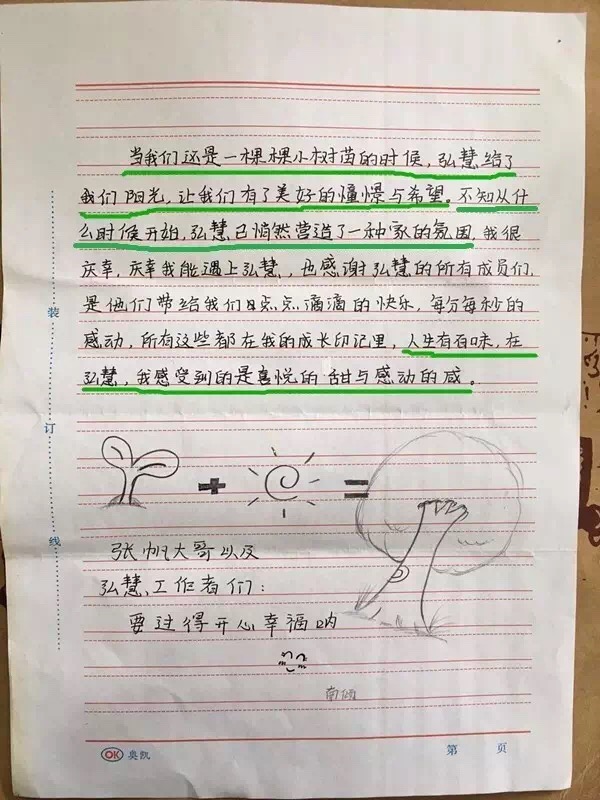 当我们还是一棵棵小树苗的时候，弘慧给了
我们阳光，让我们有了美好的憧憬与希望。不知从什
么时候开始，弘慧已悄然营造了一种家的氛围。我很
庆幸，庆幸我能遇上弘慧，也感谢弘慧的所有成员们，
是他们带给我们点点滴滴的快乐，每分每秒的
感动，所有这些都在我的成长印记里，人生有百味，在
弘慧，我感受到的是喜悦的甜与感动的咸。
装
订
线
+
=
张帆大哥以及
弘慧工作者们：
要过得开心幸福呐
OK 奥凯
第 页